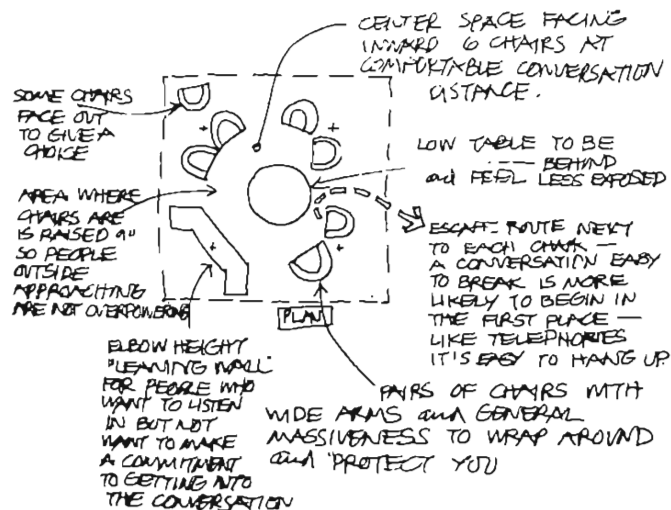 CENTER SPACE FACING
INWARD 6 CHAIRS AT
COMFORTABLE CONVERSATION
DISTANCE.
SOME CHAIRS
FACE OUT
TO GIVE A
CHOICE
LOW TABLE TO BE
BEHIND
and FEEL LESS EXPOSED
AREA WHERE
CHAIRS ARE
IS RAISED 9"
SO PEOPLE
OUTSIDE
APPROACHING
ARE NOT OVERPOWERING
ESCAPE ROUTE NEXT
TO EACH CHAIR —
A CONVERSATION EASY
TO BREAK IS MORE
LIKELY TO BEGIN IN
THE FIRST PLACE —
LIKE TELEPHONES
IT'S EASY TO HANG UP
PLAN
ELBOW HEIGHT
"LEANING WALL"
FOR PEOPLE WHO
WANT TO LISTEN
IN BUT NOT
WANT TO MAKE
A COMMITMENT
TO GETTING INTO
THE CONVERSATION
PAIRS OF CHAIRS WITH
WIDE ARMS and GENERAL
MASSIVENESS TO WRAP AROUND
and "PROTECT YOU